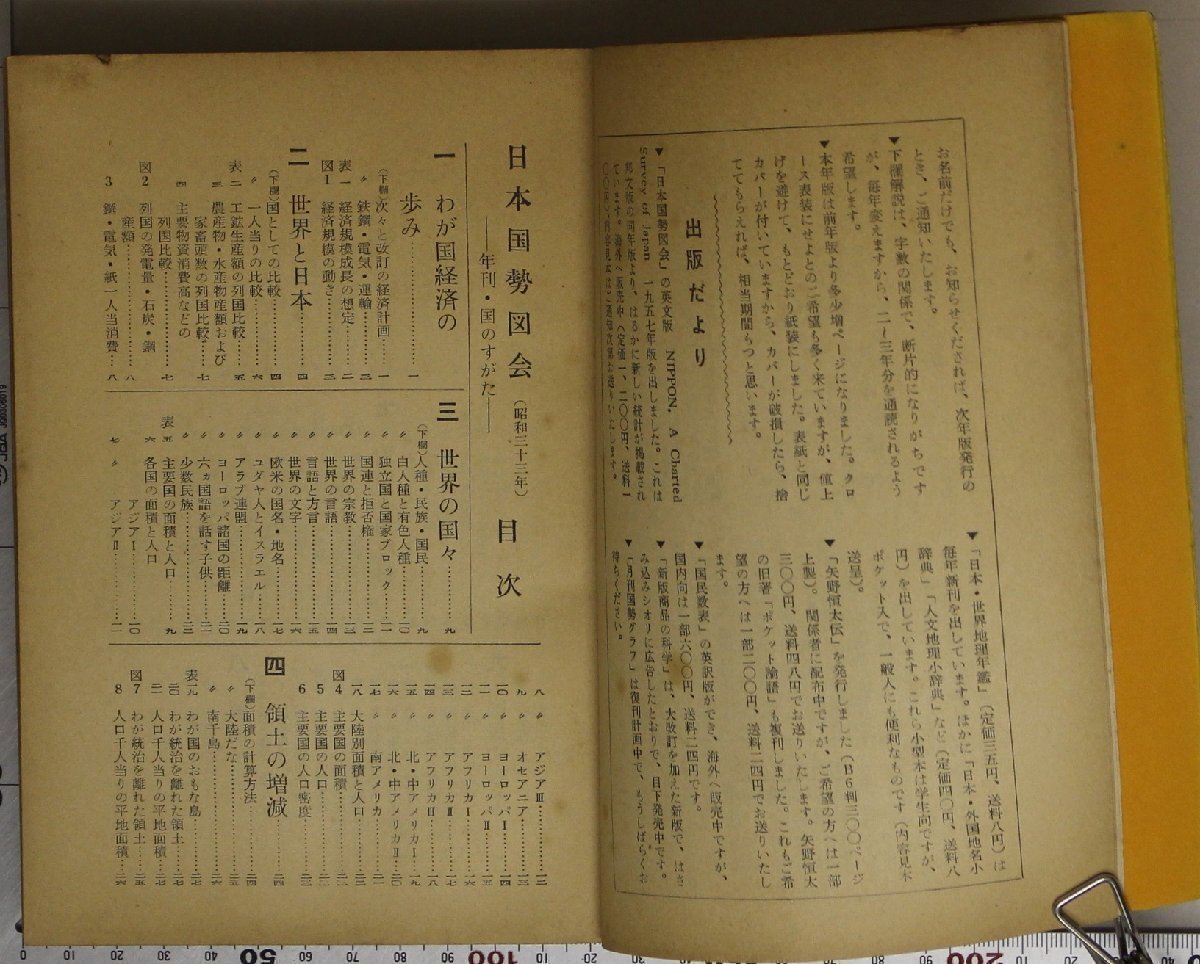 お名前だけでも、お知らせくだされば、次年版発行の
とき、ご通知いたします。
▼下欄解説は、字数の関係で、断片的になりがちです
が、毎年変えますから、二〜三年分を通読されるよう
希望します。
▼本年版は前年版より多少増ページになりました。クロ
ース表装にせよとのご希望も多く来ていますが、値上
げを避けて、もとどおり紙装にしました。表紙と同じ
カバーが付いていますから、カバーが破損したら、捨
ててもらえれば、相当期間もつと思います。
出版だより
▼「日本国勢図会」の英文版 NIPPON, A Charted
Survey of Japan 一九五七年版を出しました。これは
邦文版の同年版より、はるかに新しい統計が掲載され
ています。海外へ販売中（定価一、二〇〇円、送料一
▼「日本・世界地理年鑑」（定価三五円、送料八円）は
毎年新刊を出しています。ほかに「日本・外国地名小
辞典」「人文地理小辞典」など（定価四〇円、送料八
円）を出しています。これら小型本は学生向ですが、
ポケット入で、一般人にも便利なものです（内容見本
送呈）。
▼「矢野恒太伝」を発行しました（B6判三〇〇ページ
上製）。関係者に配布中ですが、ご希望の方へは一部
三〇〇円、送料四八円でお送りいたします。矢野恒太
の旧著「ポケット論語」も複刊しました。これもご希
望の方へは一部二〇〇円、送料二四円でお送りいたし
ます。
▼「国民数表」の英訳版ができ、海外へ販売中ですが、
国内向は一部六〇〇円、送料二四円です。
▼「新版商品の科学」は、大改訂を加えた新版で、はさ
み込みシオリに広告したとおりで、目下発売中です。
▼「月刊国勢グラフ」は復刊計画中で、もうしばらくお
待ちください。
日本国勢図会（昭和三十三年）　目次
——年刊・国のすがた——
一　わが国経済の
歩み……一
（下欄）次々と改訂の経済計画……一
〃　鉄鋼・電気・運輸……二
表一　経済規模成長の想定……二
図1　経済規模の動き……三
二　世界と日本……四
（下欄）国としての比較……四
〃　一人当りの比較……六
表二　工鉱生産額の列国比較……五
三　農産物・水産物産額および
家畜頭数の列国比較……七
四　主要物資消費高などの
列国比較……七
図2　列国の発電量・石炭・鋼
産額……八
3　鋼・電気・紙一人当消費……八
三　世界の国々……九
（下欄）人種・民族・国民……九
〃　白人種と有色人種……一〇
〃　独立国と国家ブロック……一一
〃　国連と拒否権……一二
〃　世界の宗教……一三
〃　世界の言語……一四
〃　言語と方言……一五
〃　世界の文字……一六
〃　欧米の国名・地名……一七
〃　ユダヤ人とイスラエル……一八
〃　アラブ連盟……一九
〃　ヨーロッパ諸国の距離……二〇
〃　六カ国語を話す子供……二一
〃　少数民族……二二
表五　主要国の面積と人口……九
六　各国の面積と人口
アジアⅠ……一〇
七　〃　アジアⅡ……一一
八　〃　アジアⅢ……一二
九　〃　オセアニア……一三
一〇　〃　ヨーロッパⅠ……一四
一一　〃　ヨーロッパⅡ……一五
一二　〃　アフリカⅠ……一六
一三　〃　アフリカⅡ……一七
一四　〃　アフリカⅢ……一八
一五　〃　北・中アメリカⅠ……一九
一六　〃　北・中アメリカⅡ……二〇
一七　〃　南アメリカ……二一
一八　大陸別面積と人口……二二
図4　主要国の面積……二三
5　主要国の人口……二三
6　主要国の人口密度……二三
四　領土の増減……二四
（下欄）面積の計算方法……二四
〃　大陸だな……二五
〃　南千島……二七
表一九　わが国のおもな島……二七
二〇　わが統治を離れた領土……二七
二一　人口千人当りの平地面積……二七
図7　わが統治を離れた領土……二五
8　人口千人当りの平地面積……二六